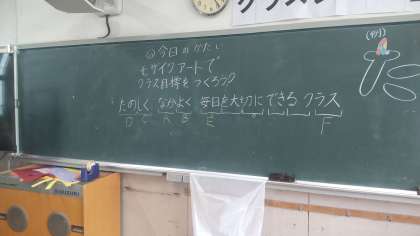 今日のかだい
モザイクアートで
クラス目標をつくろう
たのしく、なかよく 毎日を大切にできる クラス
D C A B E F
(例)
SUZUKI